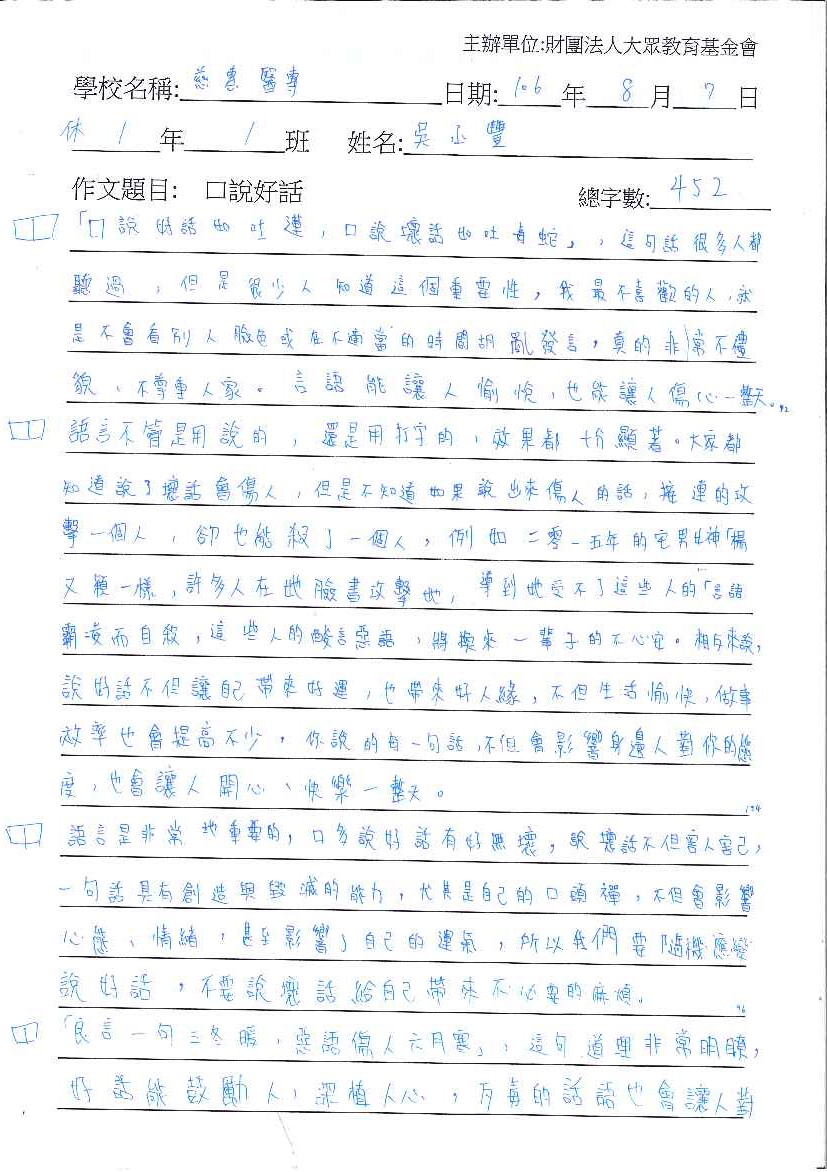 主辦單位:財團法人大眾教育基金會
學校名稱: 慈惠醫專 日期: 106 年 8 月 7 日
休 1 年 1 班 姓名: 吳丞豐
作文題目: 口說好話 總字數: 452
「口說好話如吐蓮，口說壞話如吐毒蛇」，這句話很多人都
聽過，但是很少人知道這個重要性，我最不喜歡的人，就
是不會看別人臉色或在不適當的時間胡亂發言，真的非常不禮
貌、不尊重人家。言語能讓人愉悅，也能讓人傷心一整天。92
語言不管是用說的，還是用打字的，效果都十分顯著。大家都
知道說了壞話會傷人，但是不知道如果說出來傷人的話，接連的攻
擊一個人，卻也能殺了一個人，例如二零一五年的宅男女神「楊
又穎一樣，許多人在她臉書攻擊她，導到她受不了這些人的「言語
霸凌而自殺，這些人的酸言惡語，將換來一輩子的不心安。相反來說，
說好話不但讓自己帶來好運，也帶來好人緣，不但生活愉快，做事
效率也會提高不少，你說的每一句話，不但會影響身邊人對你的態
度，也會讓人開心、快樂一整天。
194
語言是非常地重要的，口多說好話有好無壞，說壞話不但害人害己，
一句話具有創造與毀滅的能力，尤其是自己的口頭禪，不但會影響
心態、情緒，甚至影響了自己的運氣，所以我們要隨機應變
說好話，不要說壞話給自己帶來不必要的麻煩。
96
「良言一句三冬暖，惡語傷人六月寒」，這句道理非常明瞭，
好話能鼓勵人，深植人心，污辱的話語也會讓人對